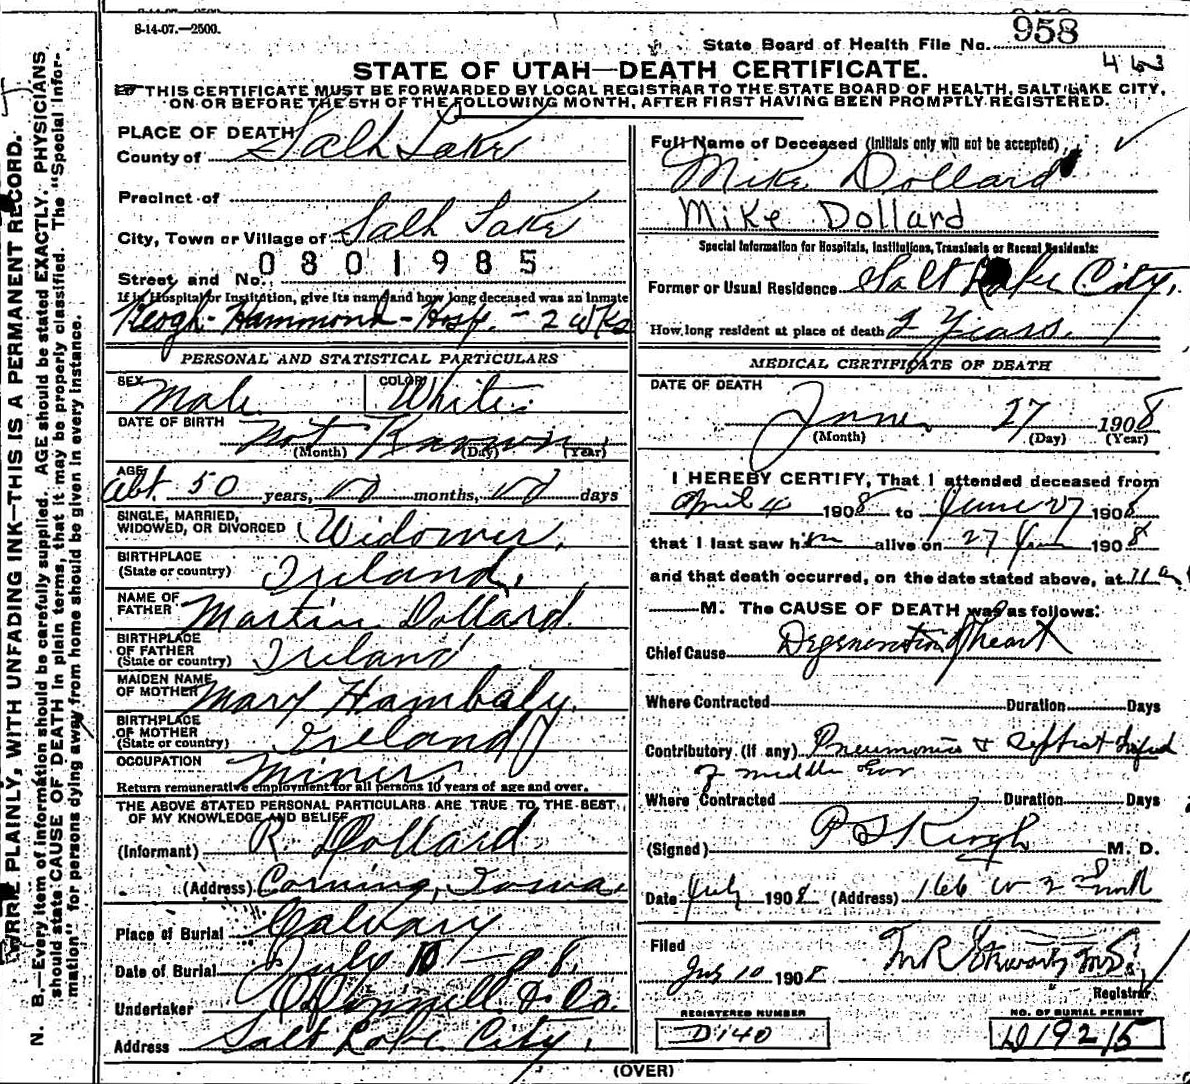 8-14-07.—2500.
State Board of Health File No. 958
STATE OF UTAH—DEATH CERTIFICATE.
THIS CERTIFICATE MUST BE FORWARDED BY LOCAL REGISTRAR TO THE STATE BOARD OF HEALTH, SALT LAKE CITY,
ON OR BEFORE THE 5TH OF THE FOLLOWING MONTH, AFTER FIRST HAVING BEEN PROMPTLY REGISTERED.
PLACE OF DEATH
County of Salt Lake
Precinct of
City, Town or Village of Salt Lake
0801985
Street and No.
If in Hospital or Institution, give its name and how long deceased was an Inmate
Keogh-Hammond-Hosp. - 2 wks
PERSONAL AND STATISTICAL PARTICULARS
SEX Male COLOR White
DATE OF BIRTH Not Known
(Month) (Day) (Year)
AGE Abt. 50 years, months, days
SINGLE, MARRIED,
WIDOWED, OR DIVORCED Widower
BIRTHPLACE
(State or country) Ireland
NAME OF
FATHER Martin Dollard
BIRTHPLACE
OF FATHER
(State or country) Ireland
MAIDEN NAME
OF MOTHER Mary Hambaly
BIRTHPLACE
OF MOTHER
(State or country) Ireland
OCCUPATION Miner
Return remunerative employment for all persons 10 years of age and over.
THE ABOVE STATED PERSONAL PARTICULARS ARE TRUE TO THE BEST
OF MY KNOWLEDGE AND BELIEF
(Informant) R. Dollard
(Address) Corning, Iowa
Place of Burial Calvary
Date of Burial July 10 - 08
Undertaker O'Donnell & Co.
Address Salt Lake City
Full Name of Deceased (Initials only will not be accepted)
Mike Dollard
Mike Dollard
Special Information for Hospitals, Institutions, Transients or Recent Residents:
Former or Usual Residence Salt Lake City
How long resident at place of death 2 Years
MEDICAL CERTIFICATE OF DEATH
DATE OF DEATH
June 27 1908
(Month) (Day) (Year)
I HEREBY CERTIFY, That I attended deceased from
April 4 1908 to June 27 1908
that I last saw him alive on 27 June 1908
and that death occurred, on the date stated above, at 11 a
M. The CAUSE OF DEATH was as follows:
Chief Cause Degeneration of heart
Where Contracted Duration Days
Contributory (if any) Pneumonia &
of middle Ear
Where Contracted Duration Days
(Signed) P S Keogh M. D.
Date July 1908 (Address) 166 W 2nd North
Filed
July 10 1908
Registrar
REGISTERED NUMBER
D140
NO. OF BURIAL PERMIT
D19215
(OVER)
N. B.—Every item of information should be carefully supplied. AGE should be stated EXACTLY. PHYSICIANS
should state CAUSE OF DEATH in plain terms, that it may be properly classified. The "Special Infor-
mation" for persons dying away from home should be given in every instance.
WRITE PLAINLY, WITH UNFADING INK—THIS IS A PERMANENT RECORD.